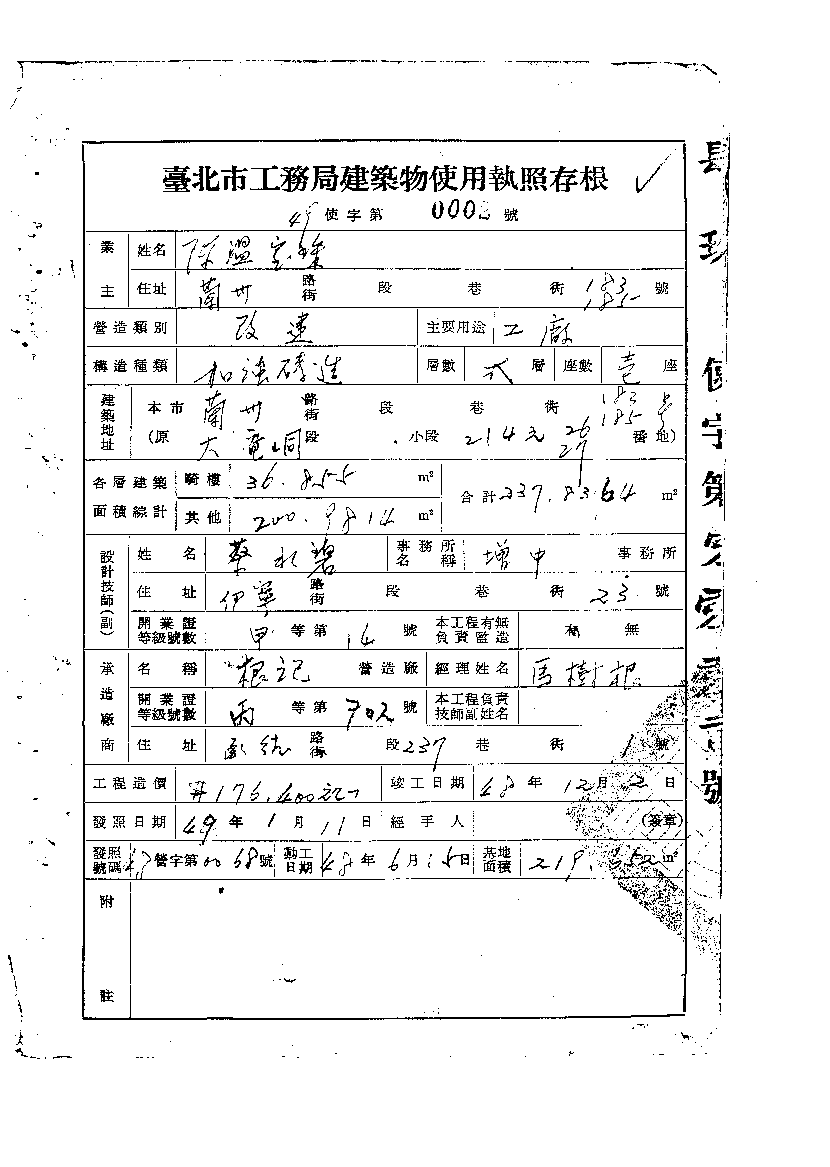 臺北市工務局建築物使用執照存根
49 使字第 0002 號
業主 姓名 陳盟
住址 蘭州 路街 段 巷 衖 183 185 號
營造類別 改建 主要用途 工廠
構造種類 加強磚造 層數 弍 層 座數 壱 座
建築地址 本市 蘭州 路街 段 巷 衖 183 185 号
(原 大竜峒 段 小段 214之 26 27 番地)
各層建築面積總計 騎樓 36.855 m² 合計 237.8364 m²
其他 200.9814 m²
設計技師(副) 姓名 蔡 事務所名稱 增中 事務所
住址 伊寧 路街 段 巷 衖 23 號
開業證等級號數 甲 等第 14 號 本工程有無負責監造 無
承造廠商 名稱 根記 營造廠 經理姓名 馬樹根
開業證等級號數 丙 等第 702 號 本工程負責技師副姓名
住址 路街 段 237 巷 衖 1 號
工程造價 176,400 竣工日期 48 年 12 月 2 日
發照日期 49 年 1 月 11 日 經手人 (簽章)
發照號碼 48 營字第 0068 號 動工日期 48 年 6 月 15 日 基地面積 219. m²
附註
使字第 號